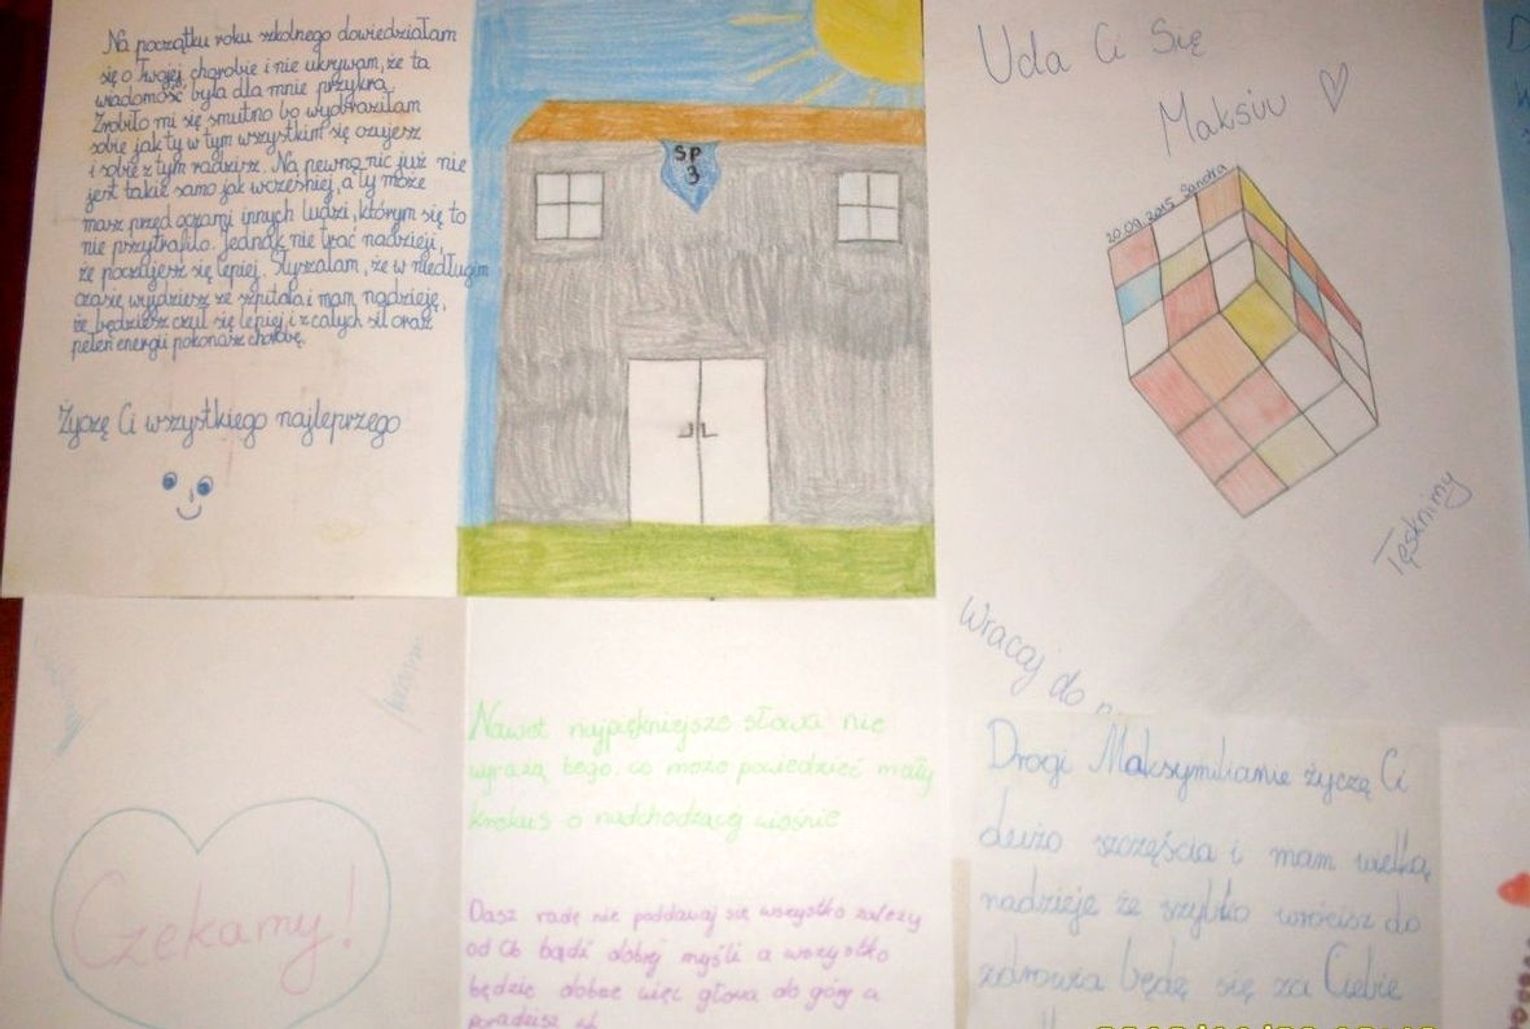 Na początku roku szkolnego dowiedziałam
się o Twojej chorobie i nie ukrywam, że ta
wiadomość była dla mnie przykra.
Zrobiło mi się smutno bo wyobraziłam
sobie jak ty w tym wszystkim się czujesz
i sobie z tym radzisz. Na pewno nic już nie
jest takie samo jak wcześniej, a ty może
masz przed oczami innych ludzi, którym się to
nie przytrafiło. Jednak nie trać nadzieji,
że poczujesz się lepiej. Słyszałam, że w niedługim
czasie wyjdziesz ze szpitala i mam nadzieję,
że będziesz czuł się lepiej i z całych sił oraz
pełen energii pokonasz chorobę.
Życzę Ci wszystkiego najleprzego
SP
3
Uda Ci Się
Maksiu
20.09.2015 Sandra
Tęsknimy
Wracaj do n
Czekamy!
Nawet najpiękniejsze słowa nie
wyrażą tego, co może powiedzieć mały
krokus o nadchodzącej wiośnie
Dasz radę nie poddawaj się wszystko zależy
od Cb bądź dobrej myśli a wszystko
będzie dobrze więc głowa do góry a
poradzisz
Drogi Maksymilianie życzę Ci
dużo szczęścia i mam wielką
nadzieje że szybko wrócisz do
zdrowia będę się za Ciebie